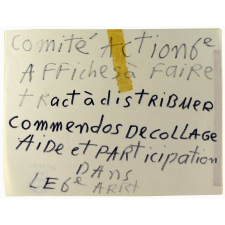 Comité Action 6e
AFFICHES à FAIRE
tRact à distRIBUER
COMMENDOS DECOLLAGE
AIDE et PARticipation
DANS
LE 6e ARRt